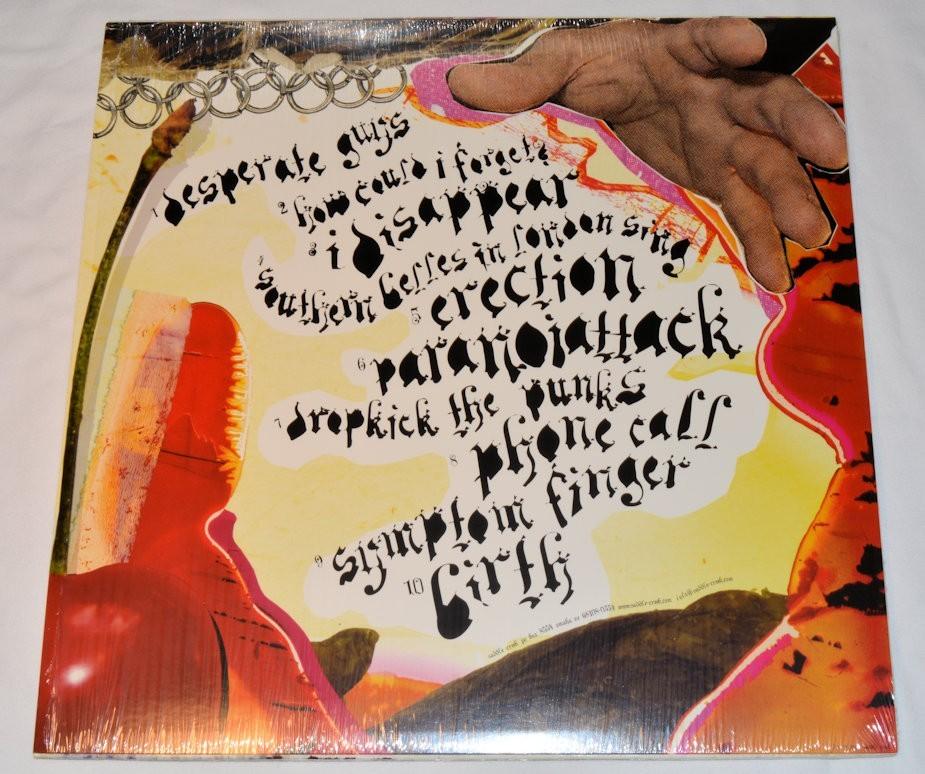 1 desperate guys
2 how could i forget?
3 i disappear
4 southern belles in london sing
5 erection
6 paranoiattack
7 dropkick the punks
8 phone call
9 symptom finger
10 birth
saddle-creek po box 8554 omaha ne 68108-0554 www.saddle-creek.com info@saddle-creek.com